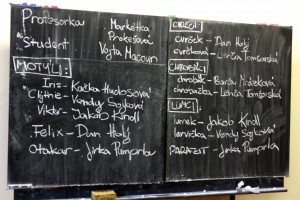 Profesorka Markétka
Prokešová
Student Vojta Macoun
MOTÝLI:
Iris - Kačka Hudosová
Clytie - Vendy Sojková
Viktor - Jakob Kindl
Felix - Dan Holý
Otakar - Jirka Pumprla
CVRČCI:
cvrček - Dan Holý
cvrčková - Lenča Tomšovská
CHROBÁCI:
chrobák - Barču
chrobačka - Lenča Tomšovská
LUMCI
lumek - Jakob Kindl
larvička - Vendy Sojková
PARAZIT - Jirka Pumprla